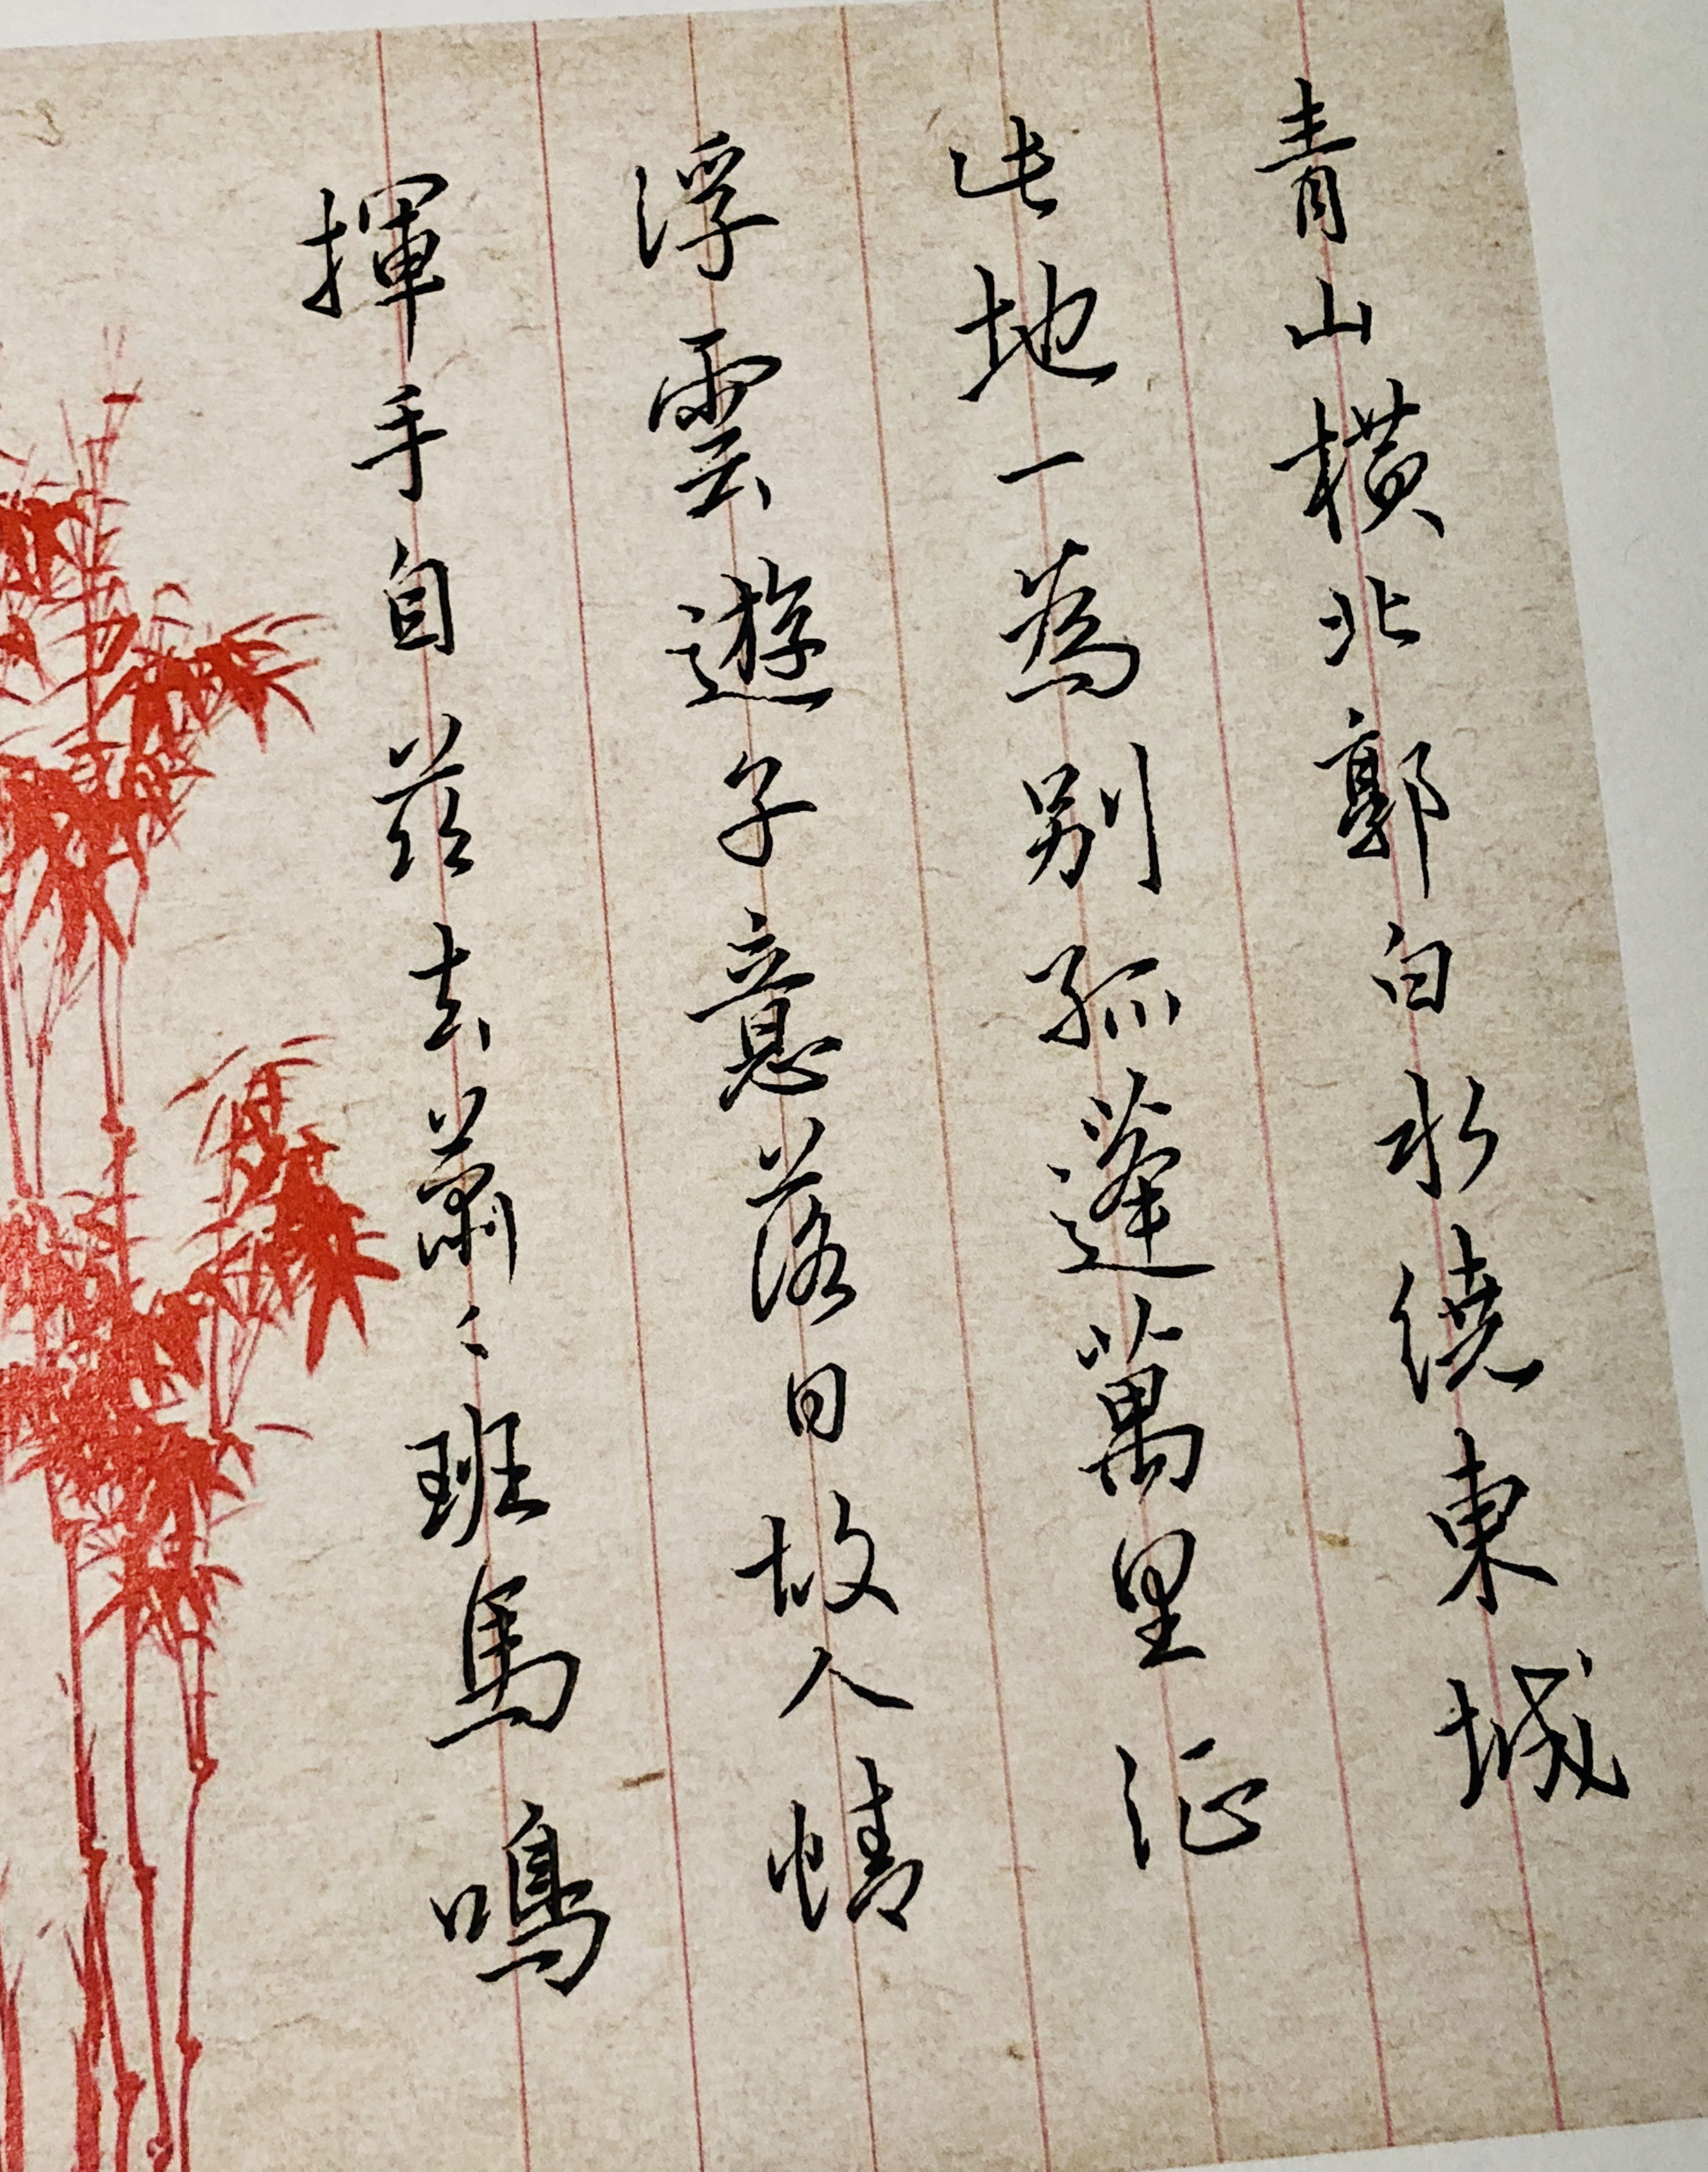 青山橫北郭白水繞東城
此地一為別孤蓬萬里征
浮雲遊子意落日故人情
揮手自茲去蕭〻班馬鳴